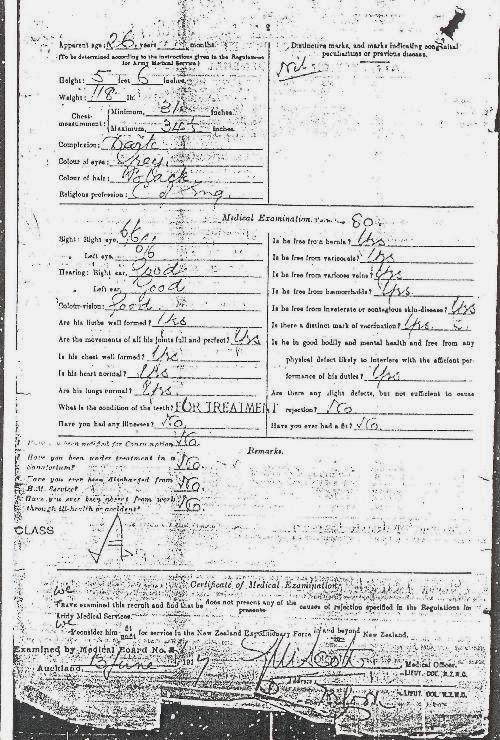 Apparent age: 26 years months.
(To be determined according to the instructions given in the Regulations for Army Medical Service.)
Height: 5 feet 6 inches.
Weight: 118 lb.
Chest-measurement: Minimum, inches.
Maximum, 34½ inches.
Complexion: Dark
Colour of eyes: Grey
Colour of hair: Black
Religious profession: C of Eng.
Distinctive marks, and marks indicating congenital peculiarities or previous disease.
Nil.
Medical Examination. 80
Sight: Right eye, 6/6
" Left eye, 6/6
Hearing: Right ear, Good
" Left ear, Good
Colour-vision: Good
Are his limbs well formed? Yes
Are the movements of all his joints full and perfect? Yes
Is his chest well formed? Yes
Is his heart normal? Yes
Are his lungs normal? Yes
What is the condition of the teeth? FOR TREATMENT
Have you had any illnesses? No
Is he free from hernia? Yes
Is he free from varicocele? Yes
Is he free from varicose veins? Yes
Is he free from hæmorrhoids? Yes
Is he free from inveterate or contagious skin-disease? Yes
Is there a distinct mark of vaccination? Yes
Is he in good bodily and mental health and free from any
physical defect likely to interfere with the efficient per-
formance of his duties? Yes
Are there any slight defects, but not sufficient to cause
rejection? No
Have you ever had a fit? No
been notified for Consumption No
Have you been under treatment in a Sanatorium? No
Have you ever been discharged from H.M. Service? No
Have you ever been absent from work through ill-health or accident? No
Remarks.
CLASS
A
Certificate of Medical Examination.
We
I have examined this recruit and find that he does not present any of the causes of rejection specified in the Regulations for
presents
Army Medical Services.
We
I consider him fit for service in the New Zealand Expeditionary Force in and beyond New Zealand.
unfit
Examined by Medical Board No.
Auckland, June 1917
Medical Officer.
LIEUT.-COL. N.Z.M.C.
Address
LIEUT.-COL. N.Z.M.C.